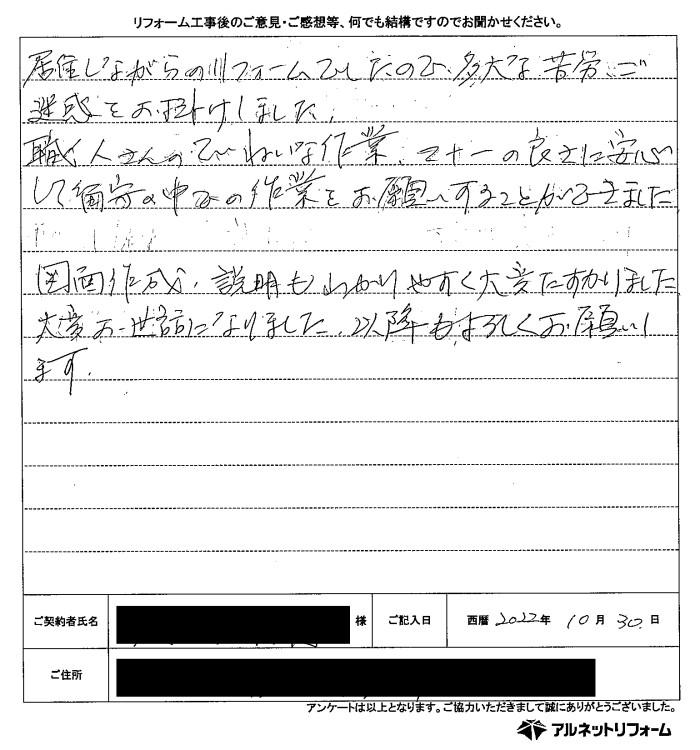 リフォーム工事後のご意見・ご感想等、何でも結構ですのでお聞かせください。
居住しながらのリフォームでしたので、多大な苦労、ご
迷惑をお掛けしました。
職人さんのていねいな作業、マナーの良さに安心
して備寄の中での作業をお願いすることができました
図面作成、説明もわかりやすく大変たすかりました
大変お世話になりました。以降もよろしくお願いし
ます。
ご契約者氏名 様 ご記入日 西暦 2022年 10月 30日
ご住所
アンケートは以上となります。ご協力いただきまして誠にありがとうございました。
アルネットリフォーム